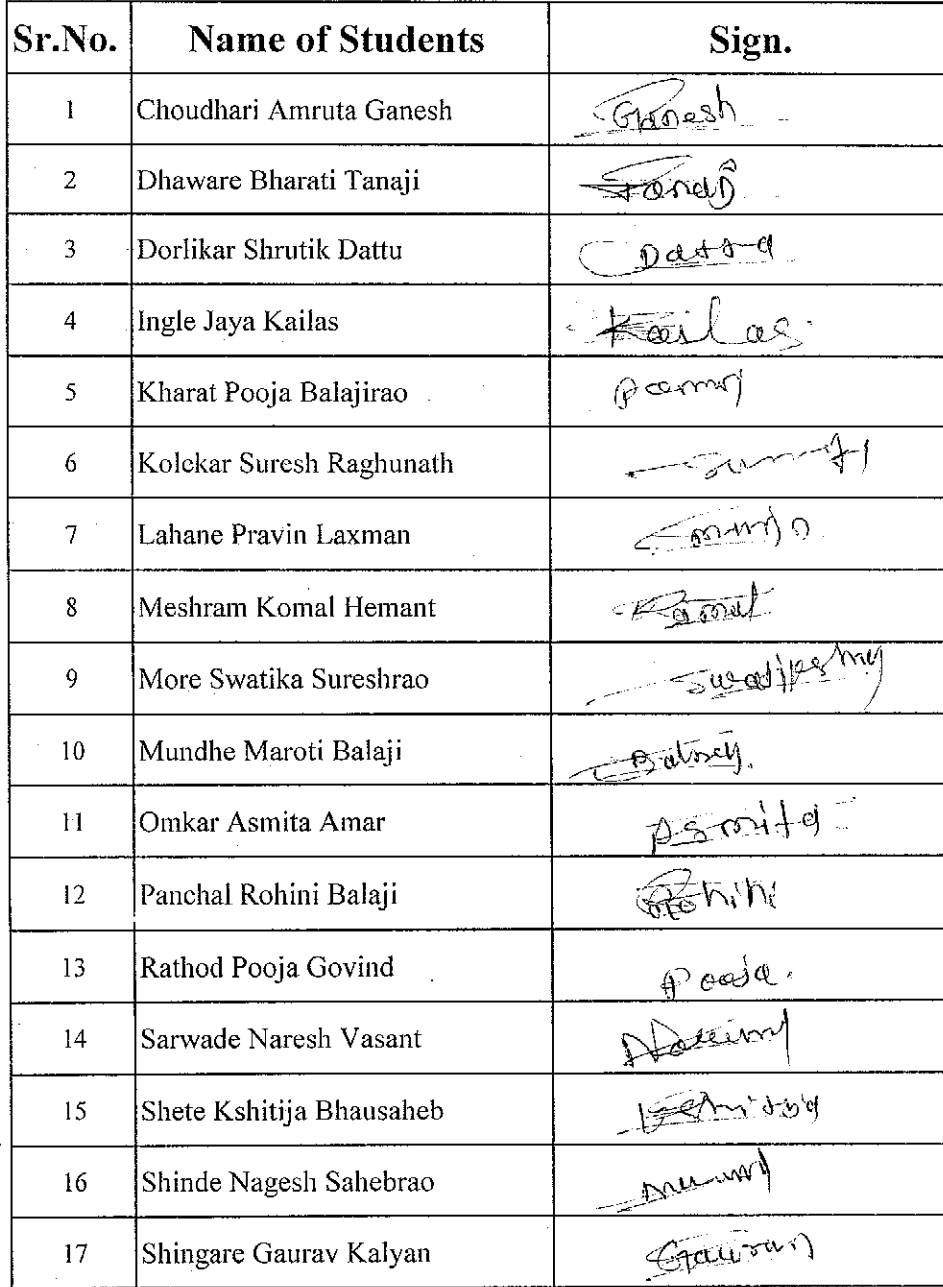 Sr.No. Name of Students Sign.
1 Choudhari Amruta Ganesh Ganesh
2 Dhaware Bharati Tanaji Tanaji
3 Dorlikar Shrutik Dattu Datta
4 Ingle Jaya Kailas Kailas
5 Kharat Pooja Balajirao
6 Kolekar Suresh Raghunath
7 Lahane Pravin Laxman
8 Meshram Komal Hemant Komal
9 More Swatika Sureshrao
10 Mundhe Maroti Balaji
11 Omkar Asmita Amar Asmita
12 Panchal Rohini Balaji Rohini
13 Rathod Pooja Govind Pooja.
14 Sarwade Naresh Vasant
15 Shete Kshitija Bhausaheb
16 Shinde Nagesh Sahebrao
17 Shingare Gaurav Kalyan Gaurav